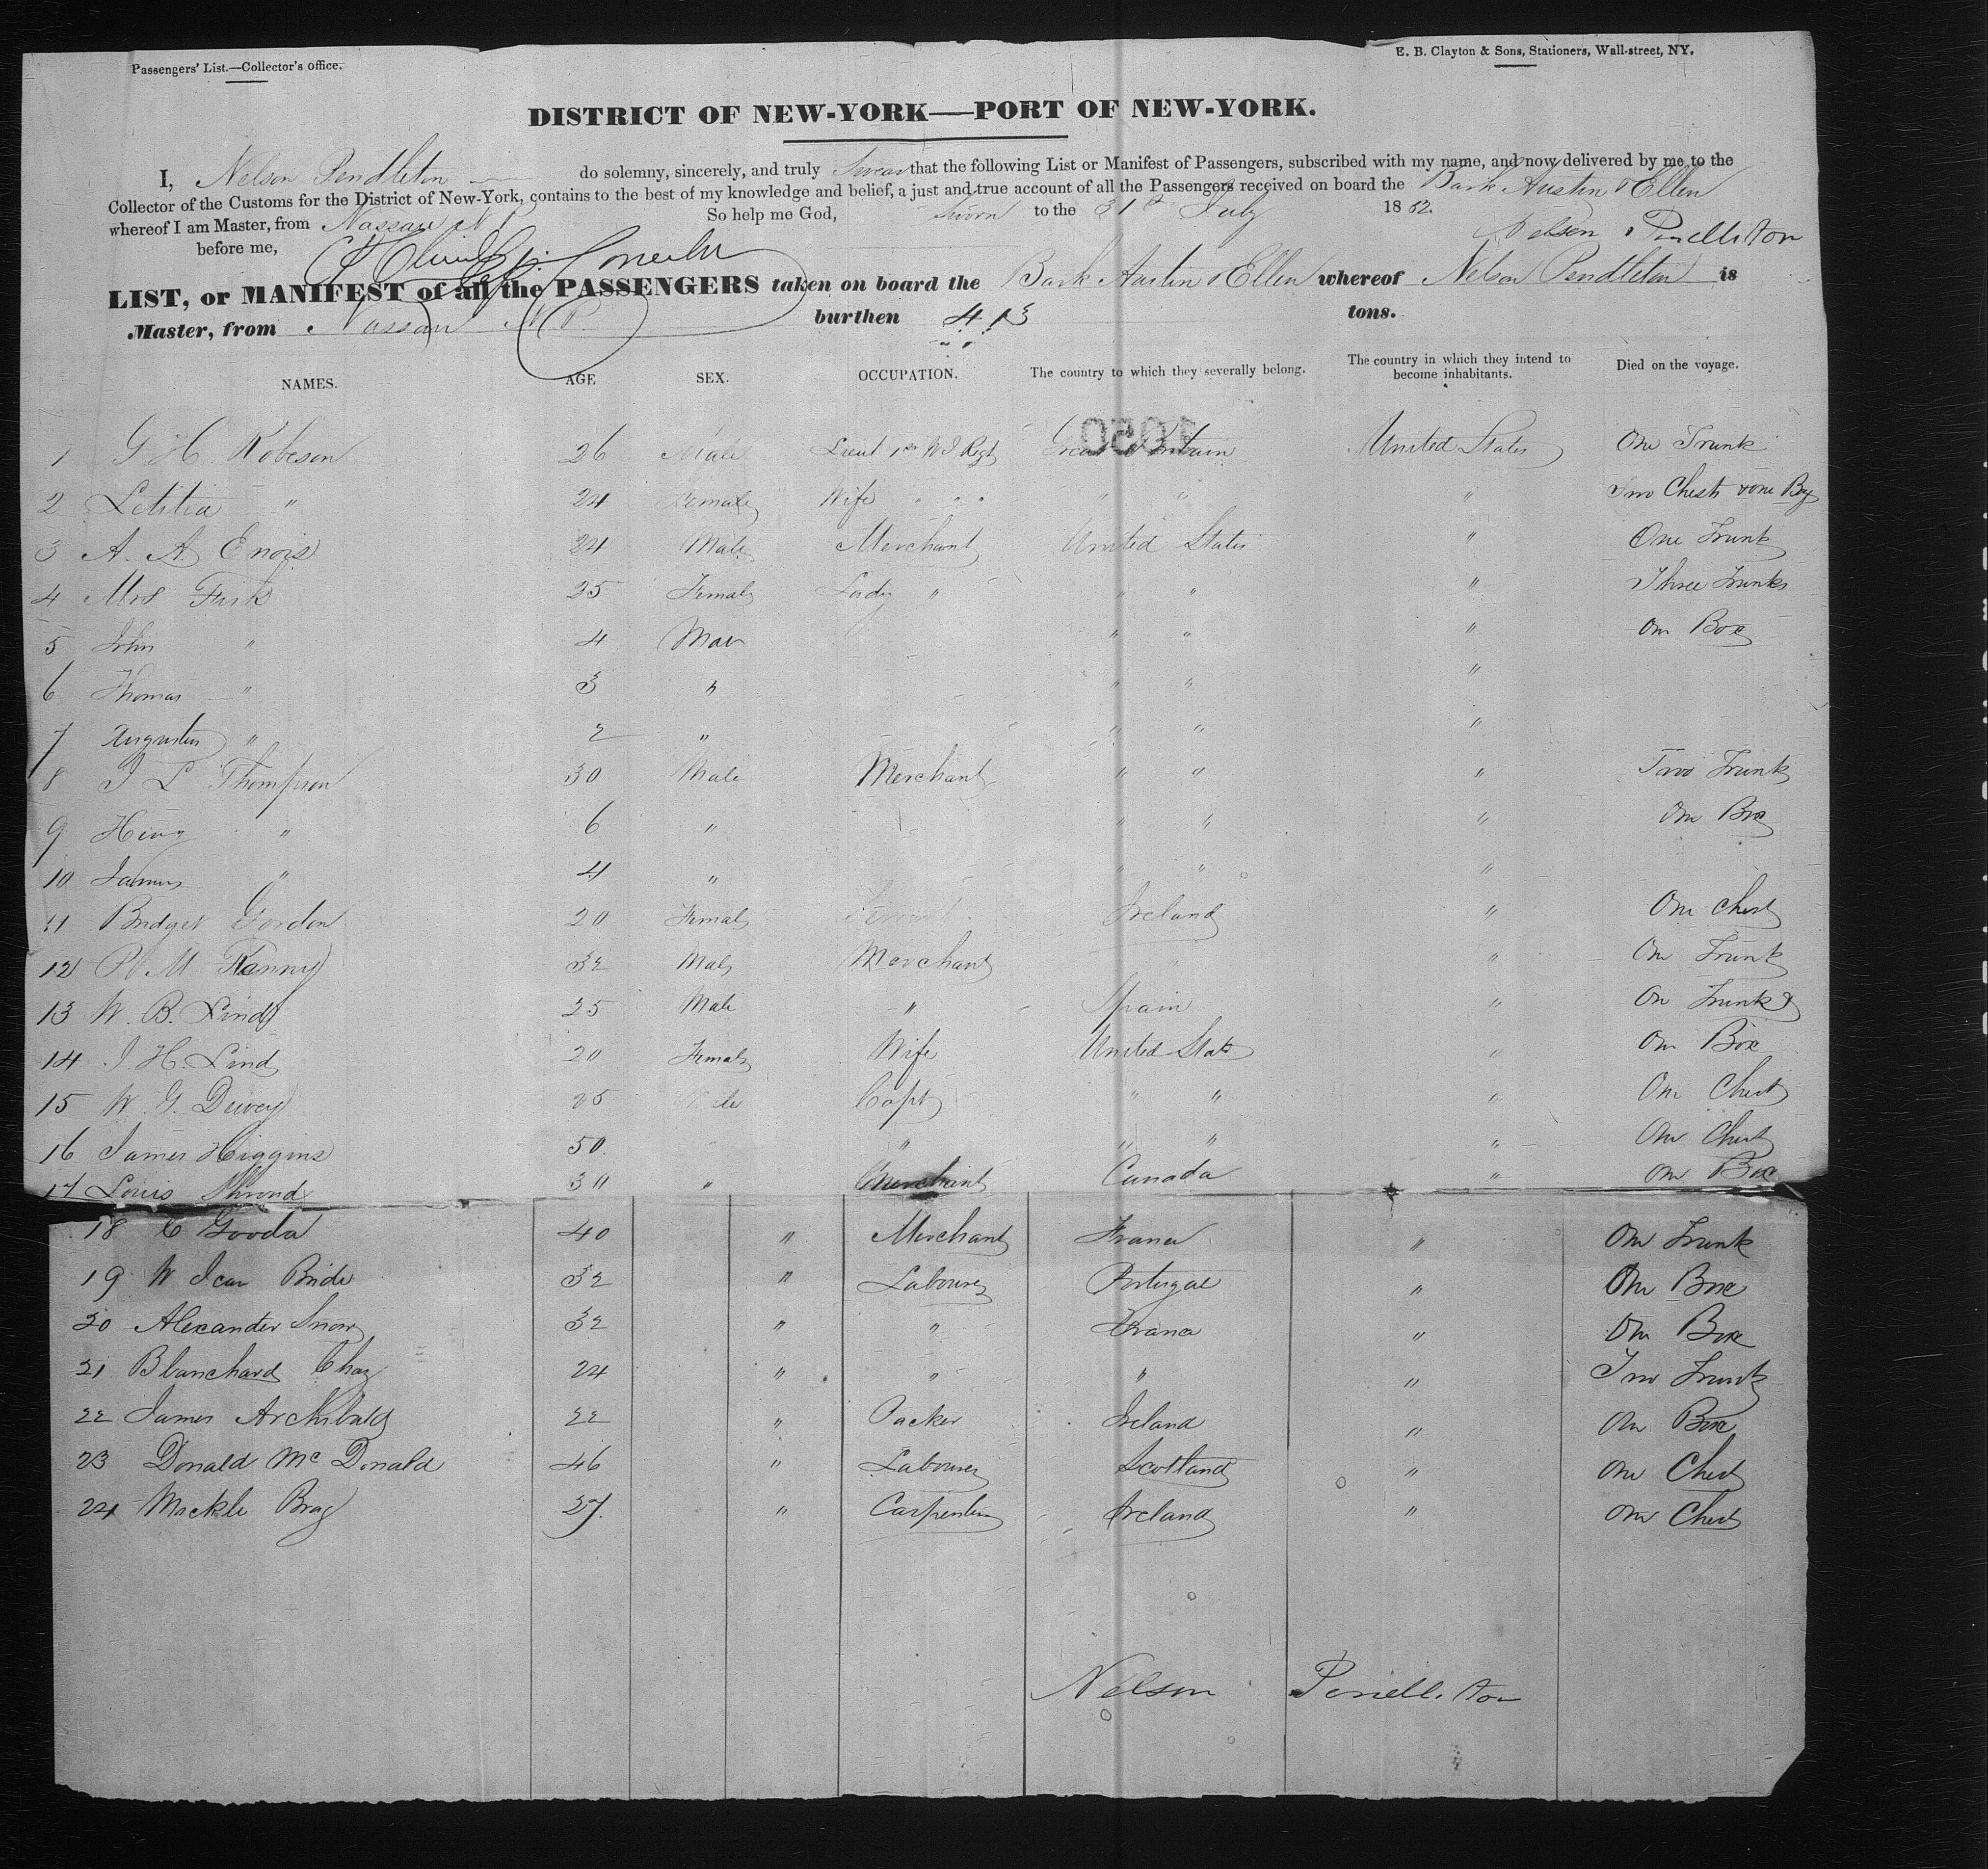 Passengers' List.—Collector's office.
E. B. Clayton & Sons, Stationers, Wall-street, NY.
DISTRICT OF NEW-YORK—PORT OF NEW-YORK.
I, Nelson Pendleton do solemny, sincerely, and truly swear that the following List or Manifest of Passengers, subscribed with my name, and now delivered by me to the
Collector of the Customs for the District of New-York, contains to the best of my knowledge and belief, a just and true account of all the Passengers received on board the Bark Austin & Ellen
whereof I am Master, from Nassau N P So help me God, Sworn to the 31st July 1862.
before me, Nelson Pendleton
LIST, or MANIFEST of all the PASSENGERS taken on board the Bark Austin & Ellen whereof Nelson Pendleton is
Master, from Nassau N.P. burthen 413 tons.
NAMES. AGE SEX. OCCUPATION. The country to which they severally belong. The country in which they intend to become inhabitants. Died on the voyage.
1 G H Robeson 26 Male Lieut 1st W I Regt Great Britain United States One Trunk
2 Letitia " 24 Female Wife " " " " " " Two Chests & one Box
3 A. A. Enois 24 Male Merchant United States " One Trunk
4 Mrs Fisk 25 Female Lady " " " " Three Trunks
5 John " 4 Male " " " One Box
6 Thomas " 3 " " " "
7 Augustus " 2 " " " "
8 J L Thompson 30 Male Merchant " " " Two Trunks
9 Henry " 6 " " " " One Box
10 James " 4 " " " "
11 Bridget Gordon 20 Female Ireland " One Chest
12 M Kenny 32 Male Merchant " " One Trunk
13 W. B. Lind 25 Male " Spain " One Trunk &
14 J. H. Lind 20 Female Wife United States " One Box
15 W. G. Dewey 25 Male Capt " " " One Chest
16 James Higgins 50. " " " " " One Chest
17 Louis 30 " Merchant Canada " One Box
18 C Gooda 40 " Merchant France " One Trunk
19 W Bride 32 " Labourer Portugal " One Box
20 Alexander Snow 32 " " France " One Box
21 Blanchard Chas 24 " " " " Two Trunks
22 James Archibald 22 " Packer Ireland " One Box
23 Donald Mc Donald 46 " Labourer Scotland " One Chest
24 Mickle Bray 27. " Carpenter Ireland " One Chest
Nelson Pendleton